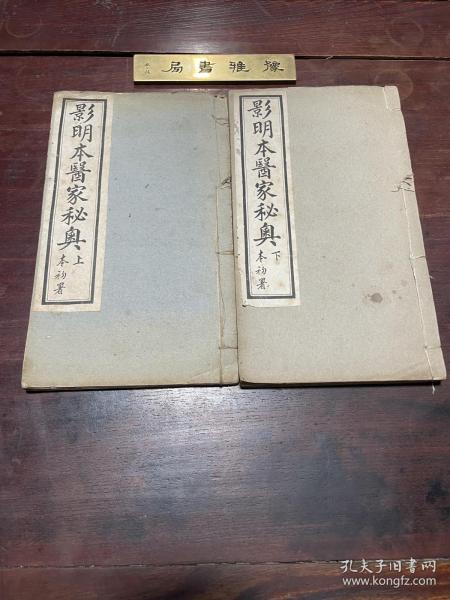 豫雅書局
影明本醫家秘奥 上
本初署
影明本醫家秘奥 下
本初署
孔夫子旧书网
www.kongfz.com